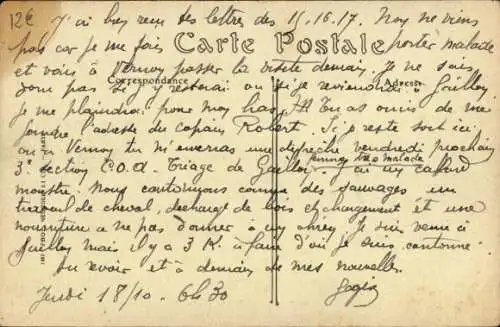 12€
J'ai bien reçu tes lettres des 15.16.17. Moy ne viens
pas car je me fais porter malade
Carte Postale
et vais à Vernon passer la visite demain. Je ne sais
Correspondance
Adresse
donc pas si j'y resterai ou si je reviendrai à Gaillon
je me plaindrai pour moy bas. Tu as omis de me
joindre l'adresse du copain Robert. Si je reste soit ici
ou à Vernon tu m'enverras une dépêche vendredi prochain
très malade
3e section C.O.A. Triage de Gaillon. J'ai un cafard
monstre. Nous cantonnons comme des sauvages un
travail de cheval, décharge de bois et chargement et une
nourriture à ne pas donner à un chien. Je suis venu à
Gaillon mais il y a 3 K. à faire d'où je suis cantonné.
Au revoir et à demain de mes nouvelles.
Jeudi 18/10. 6h30